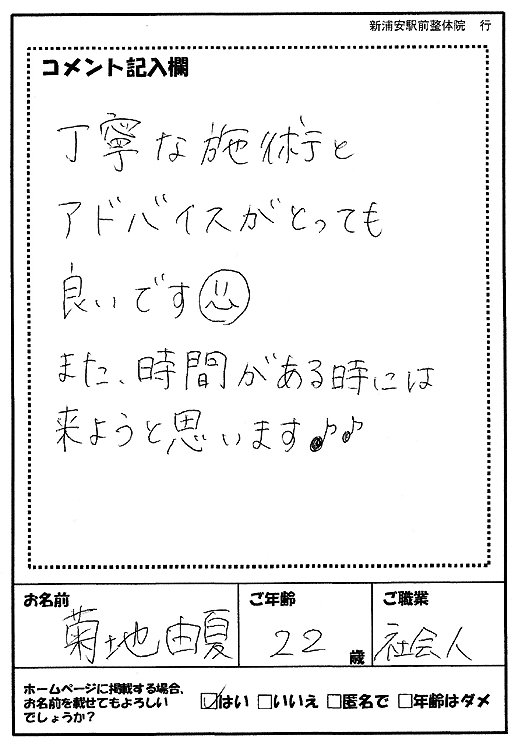 新浦安駅前整体院　行
コメント記入欄
丁寧な施術と
アドバイスがとっても
良いです
また、時間がある時には
来ようと思います♪♪
お名前
菊地由夏
ご年齢
22歳
ご職業
社会人
ホームページに掲載する場合、
お名前を載せてもよろしい
でしょうか？
☑はい □いいえ □匿名で □年齢はダメ